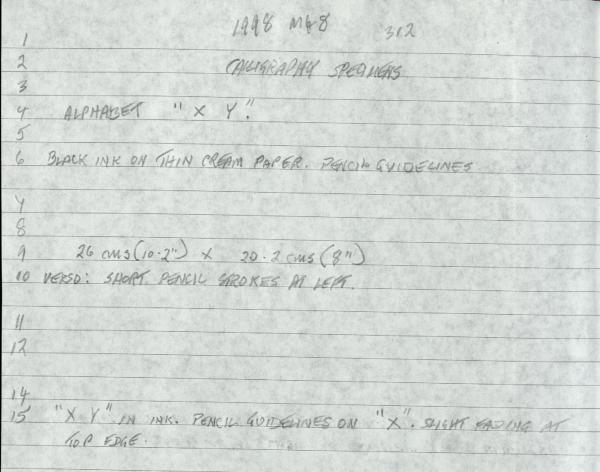 1998 M68 312
1
2 CALLIGRAPHY SPECIMENS
3
4 ALPHABET "X Y".
5
6 BLACK INK ON THIN CREAM PAPER. PENCIL GUIDELINES
7
8
9 26 cms (10.2") X 20.2 cms (8")
10 VERSO: SHORT PENCIL STROKES AT LEFT.
11
12
14
15 "X Y" IN INK. PENCIL GUIDELINES ON "X". SLIGHT FADING AT
TOP EDGE.